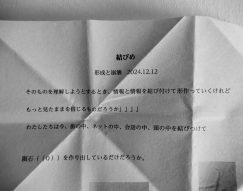 結びめ
形成と崩壊 2024.12.12
そのものを理解しようとするとき、情報と情報を結び付けて形作っていくけれど
もっと見たままを信じるものだろうか」」」」
わたしたちは今、街の中、ネットの中、会話の中、頭の中を結びつけて
隕石（（O））を作り出しているだけだろうか。